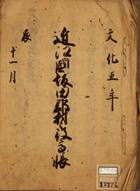 文化五年
近江國坂田郡村高帳
辰
十一月